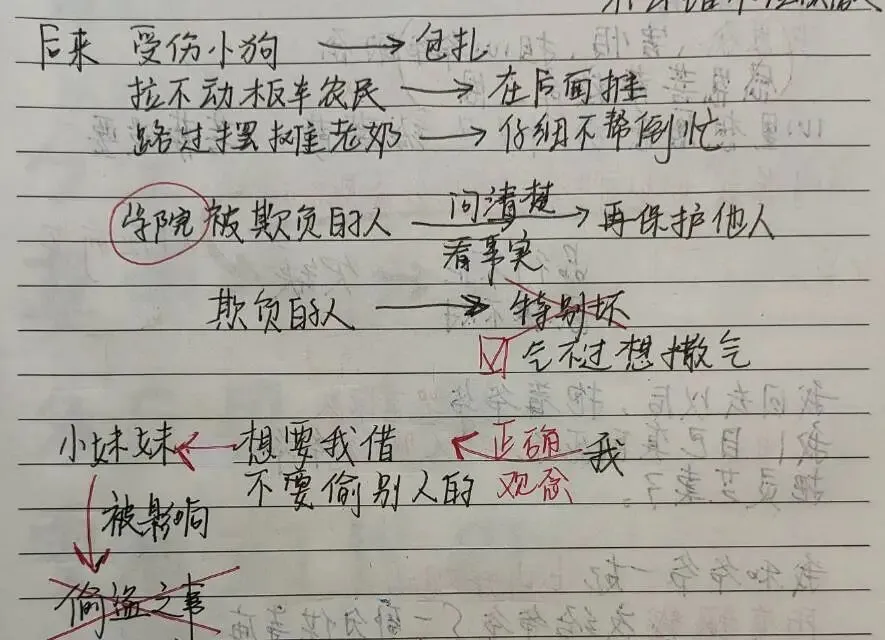 后来 受伤小狗 → 包扎
拉不动板车农民 → 在后面推
路过摆摊老奶 → 仔细不帮倒忙
学院 被欺负的人 问清楚 → 再保护他人
看事实
欺负的人 → 特别坏
☑ 气不过想撒气
小妹妹 ← 想要我借 ← 正确 我
不要偷别人的 观念
被影响
偷盗之事